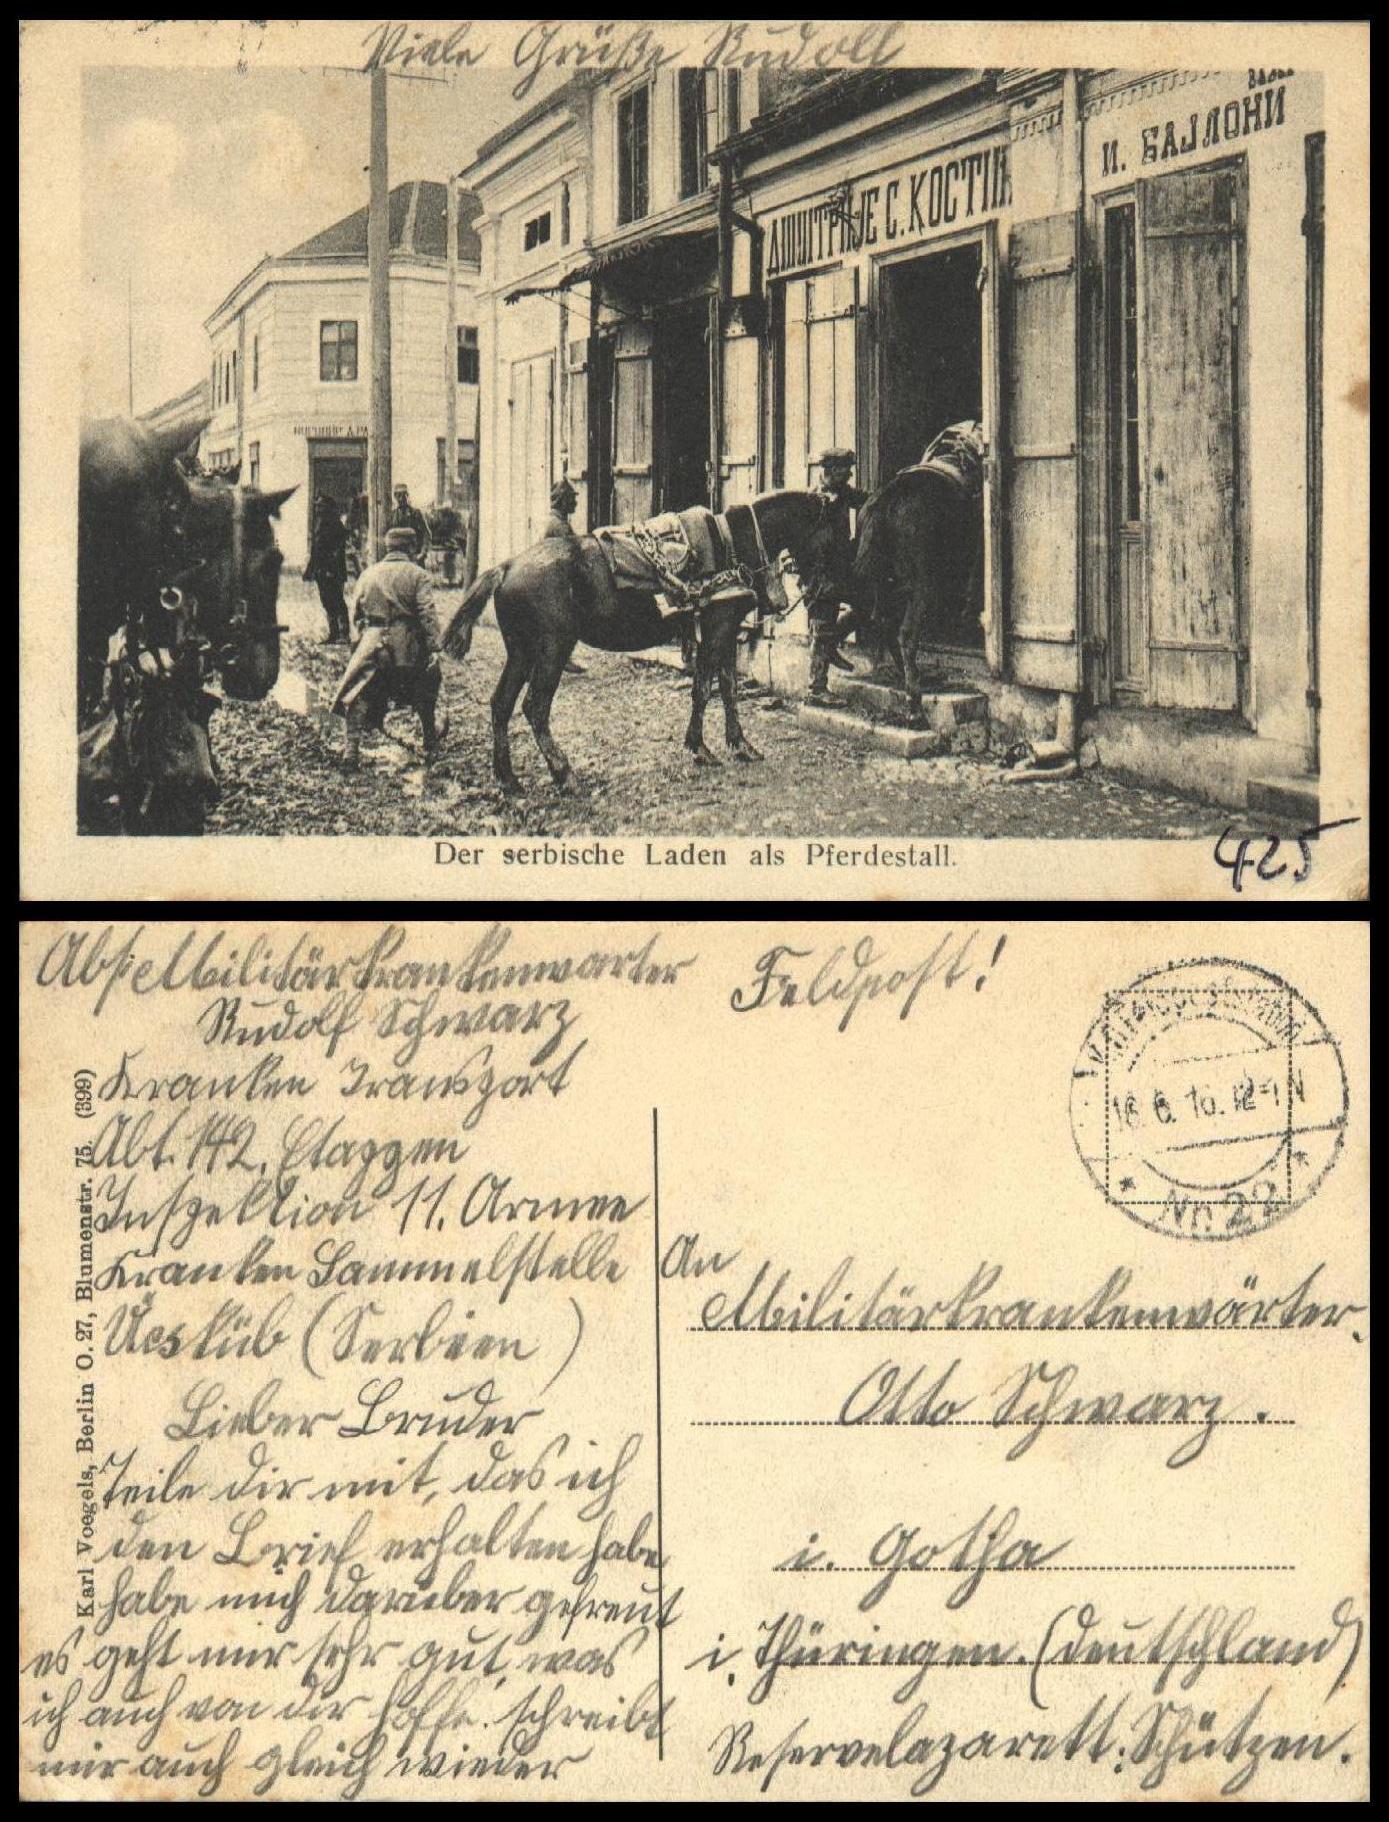 Viele Grüße Rudolf
И. БАЈЛОНИ
ДИМИТРИЈЕ С. КОСТИЋ
Der serbische Laden als Pferdestall.
425
Abs: Militärkrankenwarter
Rudolf Schwarz
Kranken Transport
Abt. 142. Etappen
Inspektion 11. Armee
Kranken Sammelstelle
Üesküb (Serbien)
Lieber Bruder
Teile dir mit, das ich
den Brief erhalten habe
habe mich darüber gefreut
es geht mir sehr gut, was
ich auch von dir hoffe. schreibt
mir auch gleich wieder
Karl Voegels, Berlin O. 27, Blumenstr. 75. (399)
Feldpost!
16.6.16. 12-1 N
* Nr. 22 *
An
Militärkrankenwärter.
Otto Schwarz.
i. Gotha
i. Thüringen. (Deutschland)
Reservelazarett: Schützen.